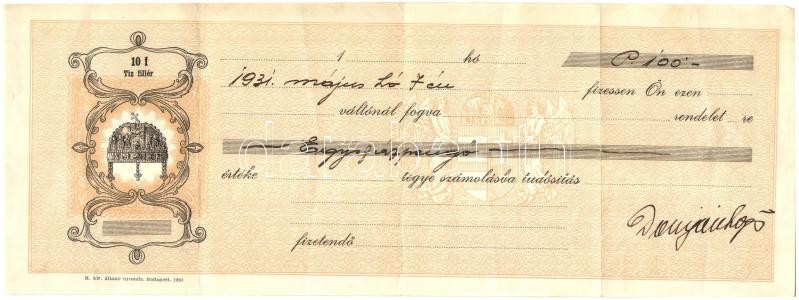 10 f
Tiz fillér
1 hó P. 100-
1931. május hó 7 én fizessen Ön ezen
váltónál fogva rendelet re
Egyszázpengő
értéke tegye számolásba tudósítás
fizetendő
M. kir. állami nyomda. Budapest,